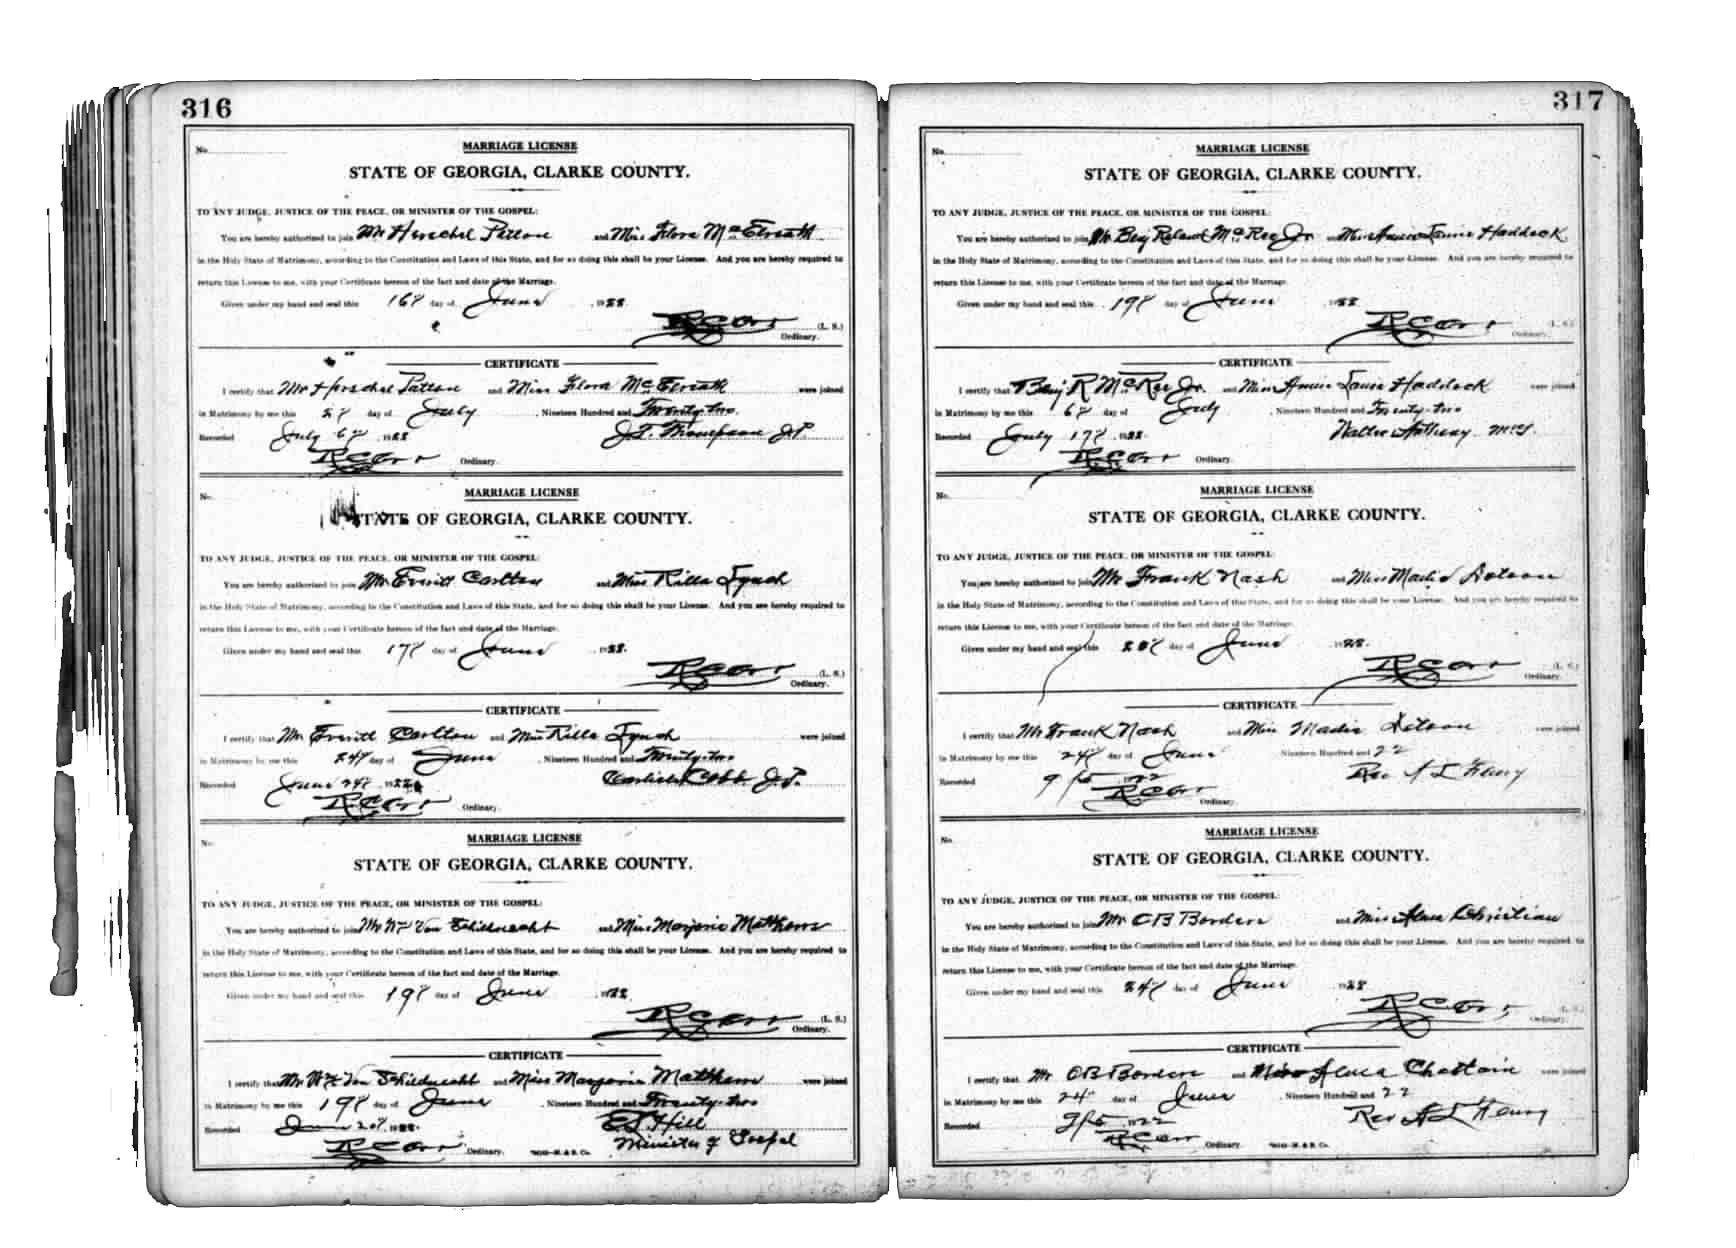 316
No.
MARRIAGE LICENSE
STATE OF GEORGIA, CLARKE COUNTY.
TO ANY JUDGE, JUSTICE OF THE PEACE, OR MINISTER OF THE GOSPEL:
You are hereby authorized to join Mr Herschel Patton and Miss Flora McElreath
in the Holy State of Matrimony, according to the Constitution and Laws of this State, and for so doing this shall be your License. And you are hereby required to
return this License to me, with your Certificate hereon of the fact and date of the Marriage.
Given under my hand and seal this 16th day of June 1922
R C Orr (L. S.)
Ordinary.
CERTIFICATE
I certify that Mr Herschel Patton and Miss Flora McElreath were joined
in Matrimony by me this 2d day of July, Nineteen Hundred and Twenty-two.
Recorded July 6th 1922 J.T. Thompson J.P.
R C Orr Ordinary.
No.
MARRIAGE LICENSE
STATE OF GEORGIA, CLARKE COUNTY.
TO ANY JUDGE, JUSTICE OF THE PEACE, OR MINISTER OF THE GOSPEL:
You are hereby authorized to join Mr Everitt Carlton and Miss Rilla Lynch
in the Holy State of Matrimony, according to the Constitution and Laws of this State, and for so doing this shall be your License. And you are hereby required to
return this License to me, with your Certificate hereon of the fact and date of the Marriage.
Given under my hand and seal this 17th day of June 1922.
R C Orr (L. S.)
Ordinary.
CERTIFICATE
I certify that Mr Everitt Carlton and Miss Rilla Lynch were joined
in Matrimony by me this 24th day of June, Nineteen Hundred and Twenty-two
Recorded June 24th 1922 Carlisle Cobb J.P.
R C Orr Ordinary.
No.
MARRIAGE LICENSE
STATE OF GEORGIA, CLARKE COUNTY.
TO ANY JUDGE, JUSTICE OF THE PEACE, OR MINISTER OF THE GOSPEL:
You are hereby authorized to join Mr Wm Von Schildnecht and Miss Marjorie Matthews
in the Holy State of Matrimony, according to the Constitution and Laws of this State, and for so doing this shall be your License. And you are hereby required to
return this License to me, with your Certificate hereon of the fact and date of the Marriage.
Given under my hand and seal this 19th day of June 1922
R C Orr (L. S.)
Ordinary.
CERTIFICATE
I certify that Mr Von Schildnecht and Miss Marjorie Matthews were joined
in Matrimony by me this 19th day of June, Nineteen Hundred and Twenty-two
Recorded June 20th 1922. E L Hill
R C Orr Ordinary. Minister of Gospel
317
No.
MARRIAGE LICENSE
STATE OF GEORGIA, CLARKE COUNTY.
TO ANY JUDGE, JUSTICE OF THE PEACE, OR MINISTER OF THE GOSPEL:
You are hereby authorized to join Mr Benj Roland McRee Jr and Miss Annie Laurie Haddock
in the Holy State of Matrimony, according to the Constitution and Laws of this State, and for so doing this shall be your License. And you are hereby required to
return this License to me, with your Certificate hereon of the fact and date of the Marriage.
Given under my hand and seal this 19th day of June 1922
R C Orr (L. S.)
Ordinary.
CERTIFICATE
I certify that Benj R McRee Jr. and Miss Annie Laurie Haddock were joined
in Matrimony by me this 6th day of July, Nineteen Hundred and Twenty-two
Recorded July 17th 1922. Walter Anthony M.G.
R C Orr Ordinary.
No.
MARRIAGE LICENSE
STATE OF GEORGIA, CLARKE COUNTY.
TO ANY JUDGE, JUSTICE OF THE PEACE, OR MINISTER OF THE GOSPEL:
You are hereby authorized to join Mr Frank Nash and Miss Madie Dotson
in the Holy State of Matrimony, according to the Constitution and Laws of this State, and for so doing this shall be your License. And you are hereby required to
return this License to me, with your Certificate hereon of the fact and date of the Marriage.
Given under my hand and seal this 20th day of June 1922.
R C Orr (L. S.)
Ordinary.
CERTIFICATE
I certify that Mr Frank Nash and Miss Madie Dotson were joined
in Matrimony by me this 24th day of June Nineteen Hundred and 22
Recorded 9/5 1922 Rev A L Henry
R C Orr Ordinary.
No.
MARRIAGE LICENSE
STATE OF GEORGIA, CLARKE COUNTY.
TO ANY JUDGE, JUSTICE OF THE PEACE, OR MINISTER OF THE GOSPEL:
You are hereby authorized to join Mr C B Borders and Miss Alma Christian
in the Holy State of Matrimony, according to the Constitution and Laws of this State, and for so doing this shall be your License. And you are hereby required to
return this License to me, with your Certificate hereon of the fact and date of the Marriage.
Given under my hand and seal this 24th day of June 1922
R C Orr (L. S.)
Ordinary.
CERTIFICATE
I certify that Mr C B Borders and Miss Alma Chastain were joined
in Matrimony by me this 24" day of June, Nineteen Hundred and 22
Recorded 9/5 1922 Rev A L Henry
R C Orr Ordinary.